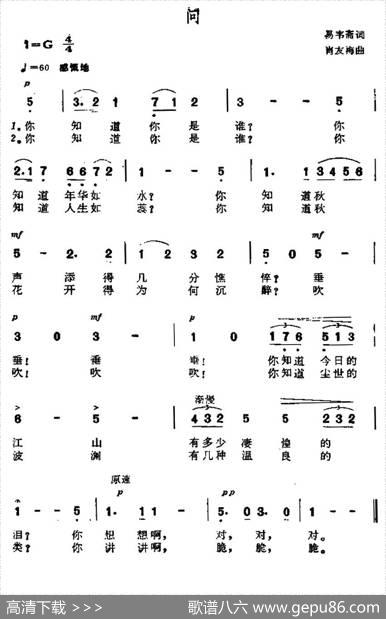 问
1=G 4/4
易韦斋词
♩=60 感慨地
肖友梅曲
p
5 3.2 1 7 1 2 3 - - 5
1.你 知 道 你 是 谁? 你
2.你 知 道 你 是 谁? 你
2.1 7 6 6 7 2 1 - - 5 1. 1 3 4 5 6
知 道 年 华 如 水? 你 知 道 秋
知 道 人 生 如 蕊? 你 知 道 秋
mf mf
5 - 2. 2 2 1 2 3 2 5 0 5 -
声 添 得 几 分 憔 悴? 垂
花 开 得 为 何 沉 醉? 吹
p mf p
3 0 3 - 1 0 1 7 6 5 1 3
垂! 垂 垂! 你知道 今日的
吹! 吹 吹! 你知道 尘世的
渐慢
6 - 5 - 4 3 2 5 5 2 3 2
江 山 有多少 凄 惶 的
波 澜 有几种 温 良 的
原速
p pp
1 - 5 1. 1 1 - 5. 0 3. 0 1 - - -
泪? 你 想 想啊, 对, 对, 对。
类? 你 讲 讲啊, 脆, 脆, 脆。
高清下载 >>>
歌谱八六 www.gepu86.com